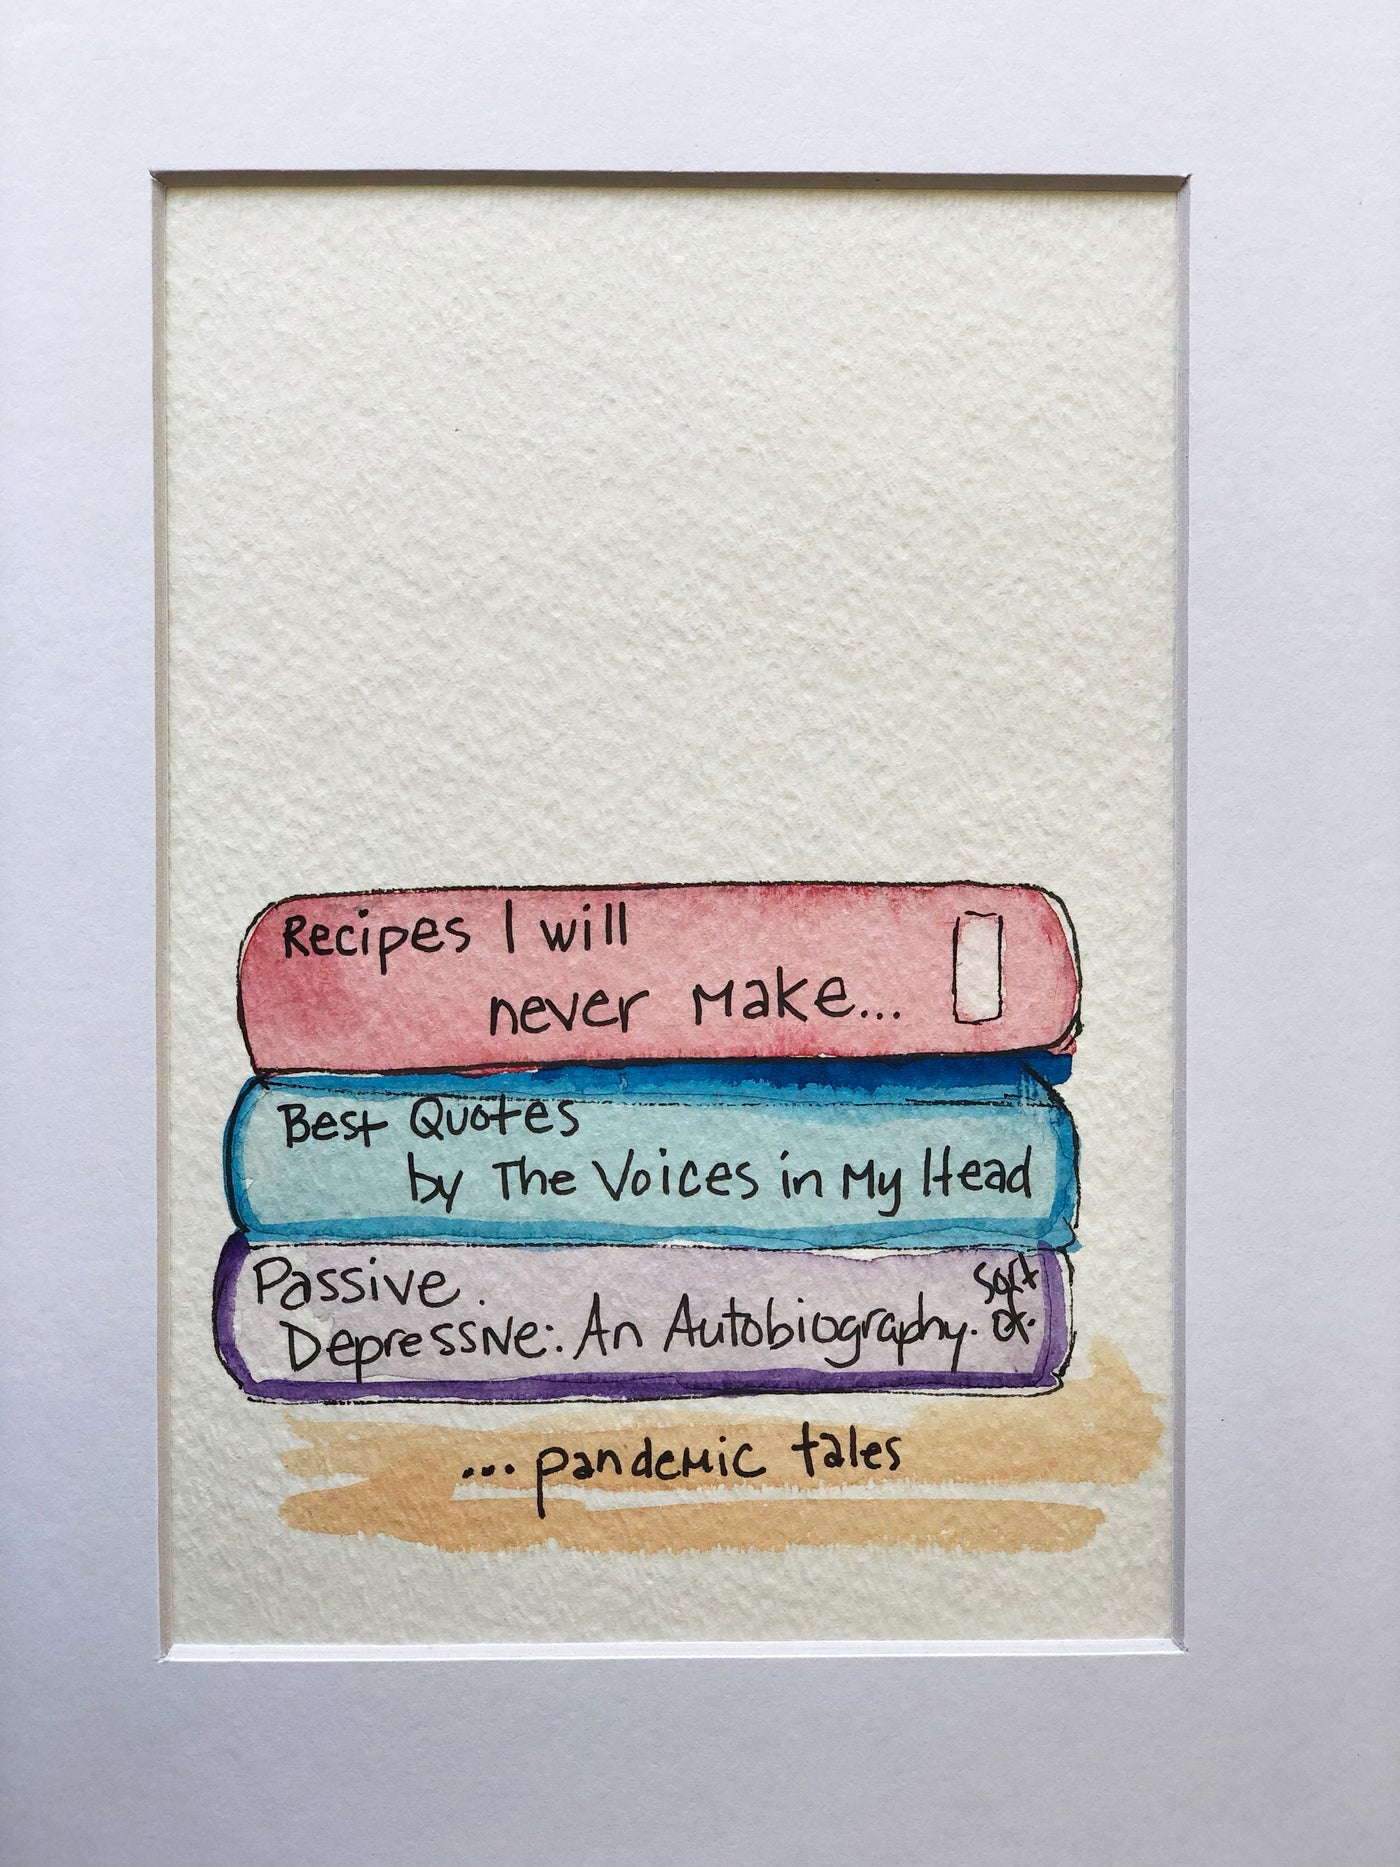 Recipes I will
never make...
Best Quotes
by The Voices in My Head
Passive
Depressive: An Autobiography. sort of.
... pandemic tales